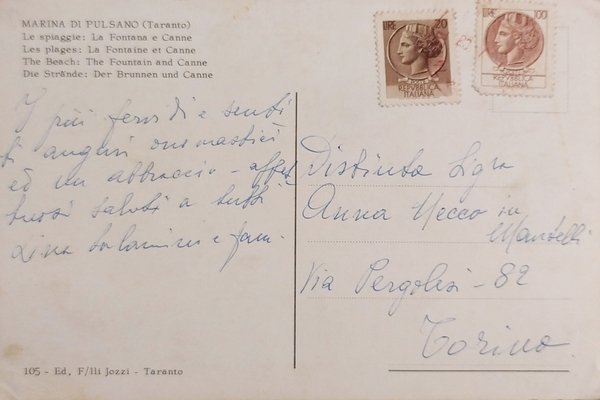 MARINA DI PULSANO (Taranto)
Le spiaggie: La Fontana e Canne
Les plages: La Fontaine et Canne
The Beach: The Fountain and Canne
Die Strände: Der Brunnen und Canne
LIRE 20
POSTE
REPVBBLICA
ITALIANA
LIRE 100
REPVBBLICA
ITALIANA
I più fervidi e senti
ti auguri onomastici
ed un abbraccio - affet
tuosi saluti a tutti
Lina e fam.
Distinta Sig.ra
Anna Mecco in
Mantelli
Via Pergolesi - 82
Torino
105 - Ed. F/lli Jozzi - Taranto